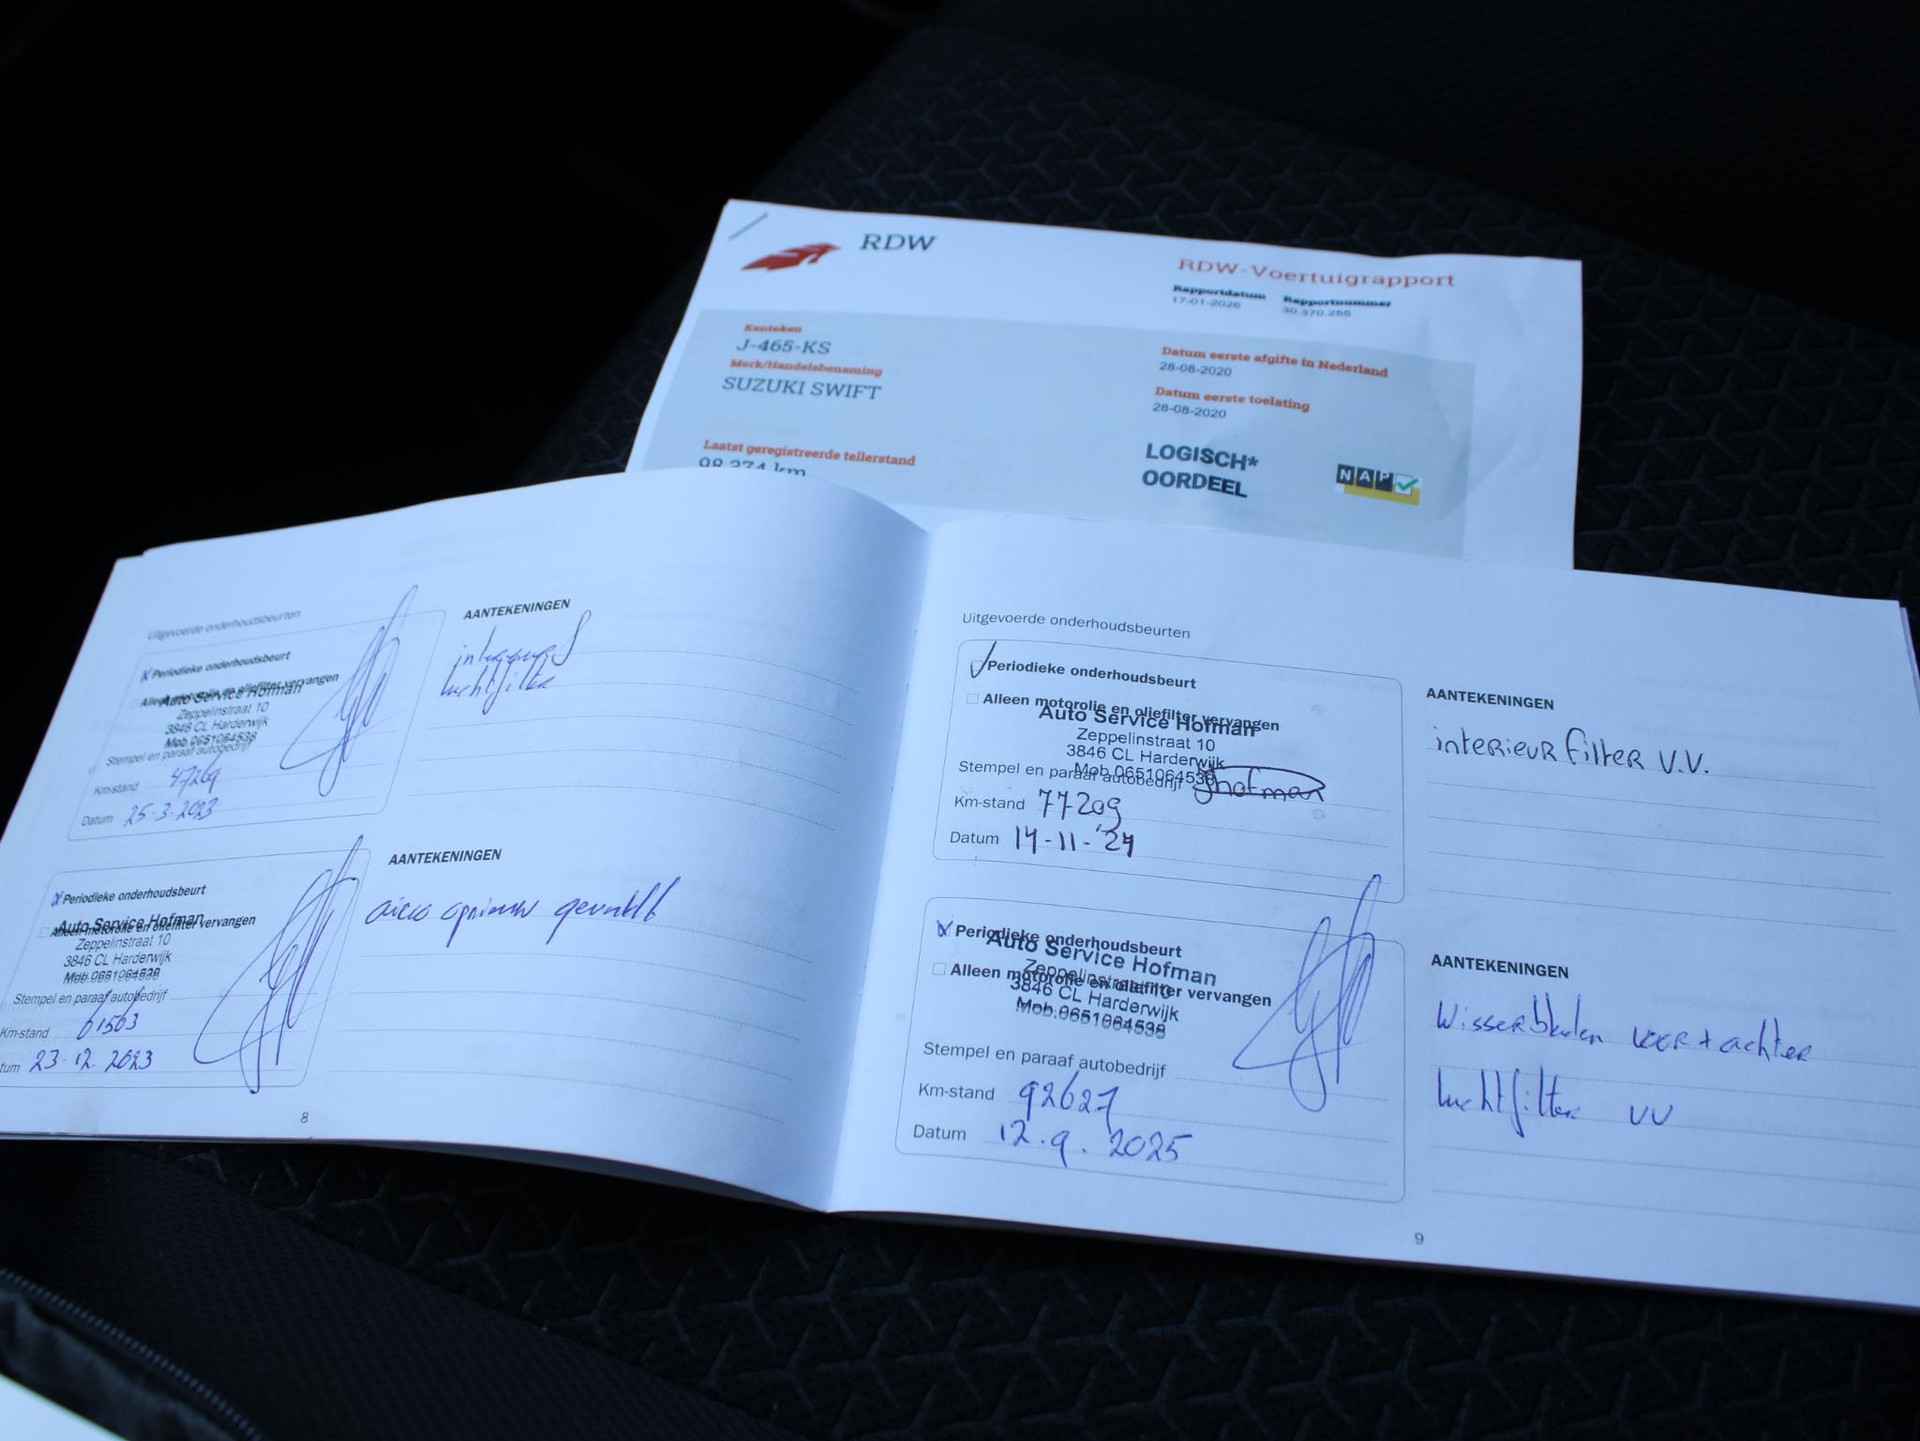 RDW
RDW-Voertuigrapport
Rapportdatum Rapportnummer
17-01-2026
Kenteken
J-465-KS
Merk/Handelsbenaming
SUZUKI SWIFT
Datum eerste afgifte in Nederland
28-08-2020
Datum eerste toelating
28-08-2020
Laatst geregistreerde tellerstand
98.274 km
LOGISCH*
OORDEEL
NAP
Uitgevoerde onderhoudsbeurten
Periodieke onderhoudsbeurt
Alleen motorolie en oliefilter vervangen
Auto Service Hofman
Zeppelinstraat 10
3846 CL Harderwijk
Mob.0651064538
Stempel en paraaf autobedrijf
Km-stand 47269
Datum 25-3-2023
AANTEKENINGEN
luchtfilter
Periodieke onderhoudsbeurt
Auto Service Hofman
Alleen motorolie en oliefilter vervangen
Zeppelinstraat 10
3846 CL Harderwijk
Mob.0651064538
Stempel en paraaf autobedrijf
Km-stand 61503
tum 23-12-2023
AANTEKENINGEN
airco opnieuw gevuld
8
Uitgevoerde onderhoudsbeurten
Periodieke onderhoudsbeurt
Alleen motorolie en oliefilter vervangen
Auto Service Hofman
Zeppelinstraat 10
3846 CL Harderwijk
Mob.0651064538
Stempel en paraaf autobedrijf Jhofman
Km-stand 77209
Datum 14-11-'24
AANTEKENINGEN
interieur filter v.v.
Periodieke onderhoudsbeurt
Auto Service Hofman
Zeppelinstraat 10
Alleen motorolie en oliefilter vervangen
3846 CL Harderwijk
Mob.0651064538
Stempel en paraaf autobedrijf
Km-stand 92627
Datum 12.9.2025
AANTEKENINGEN
Wisserbladen voor + achter
luchtfilter vv
9